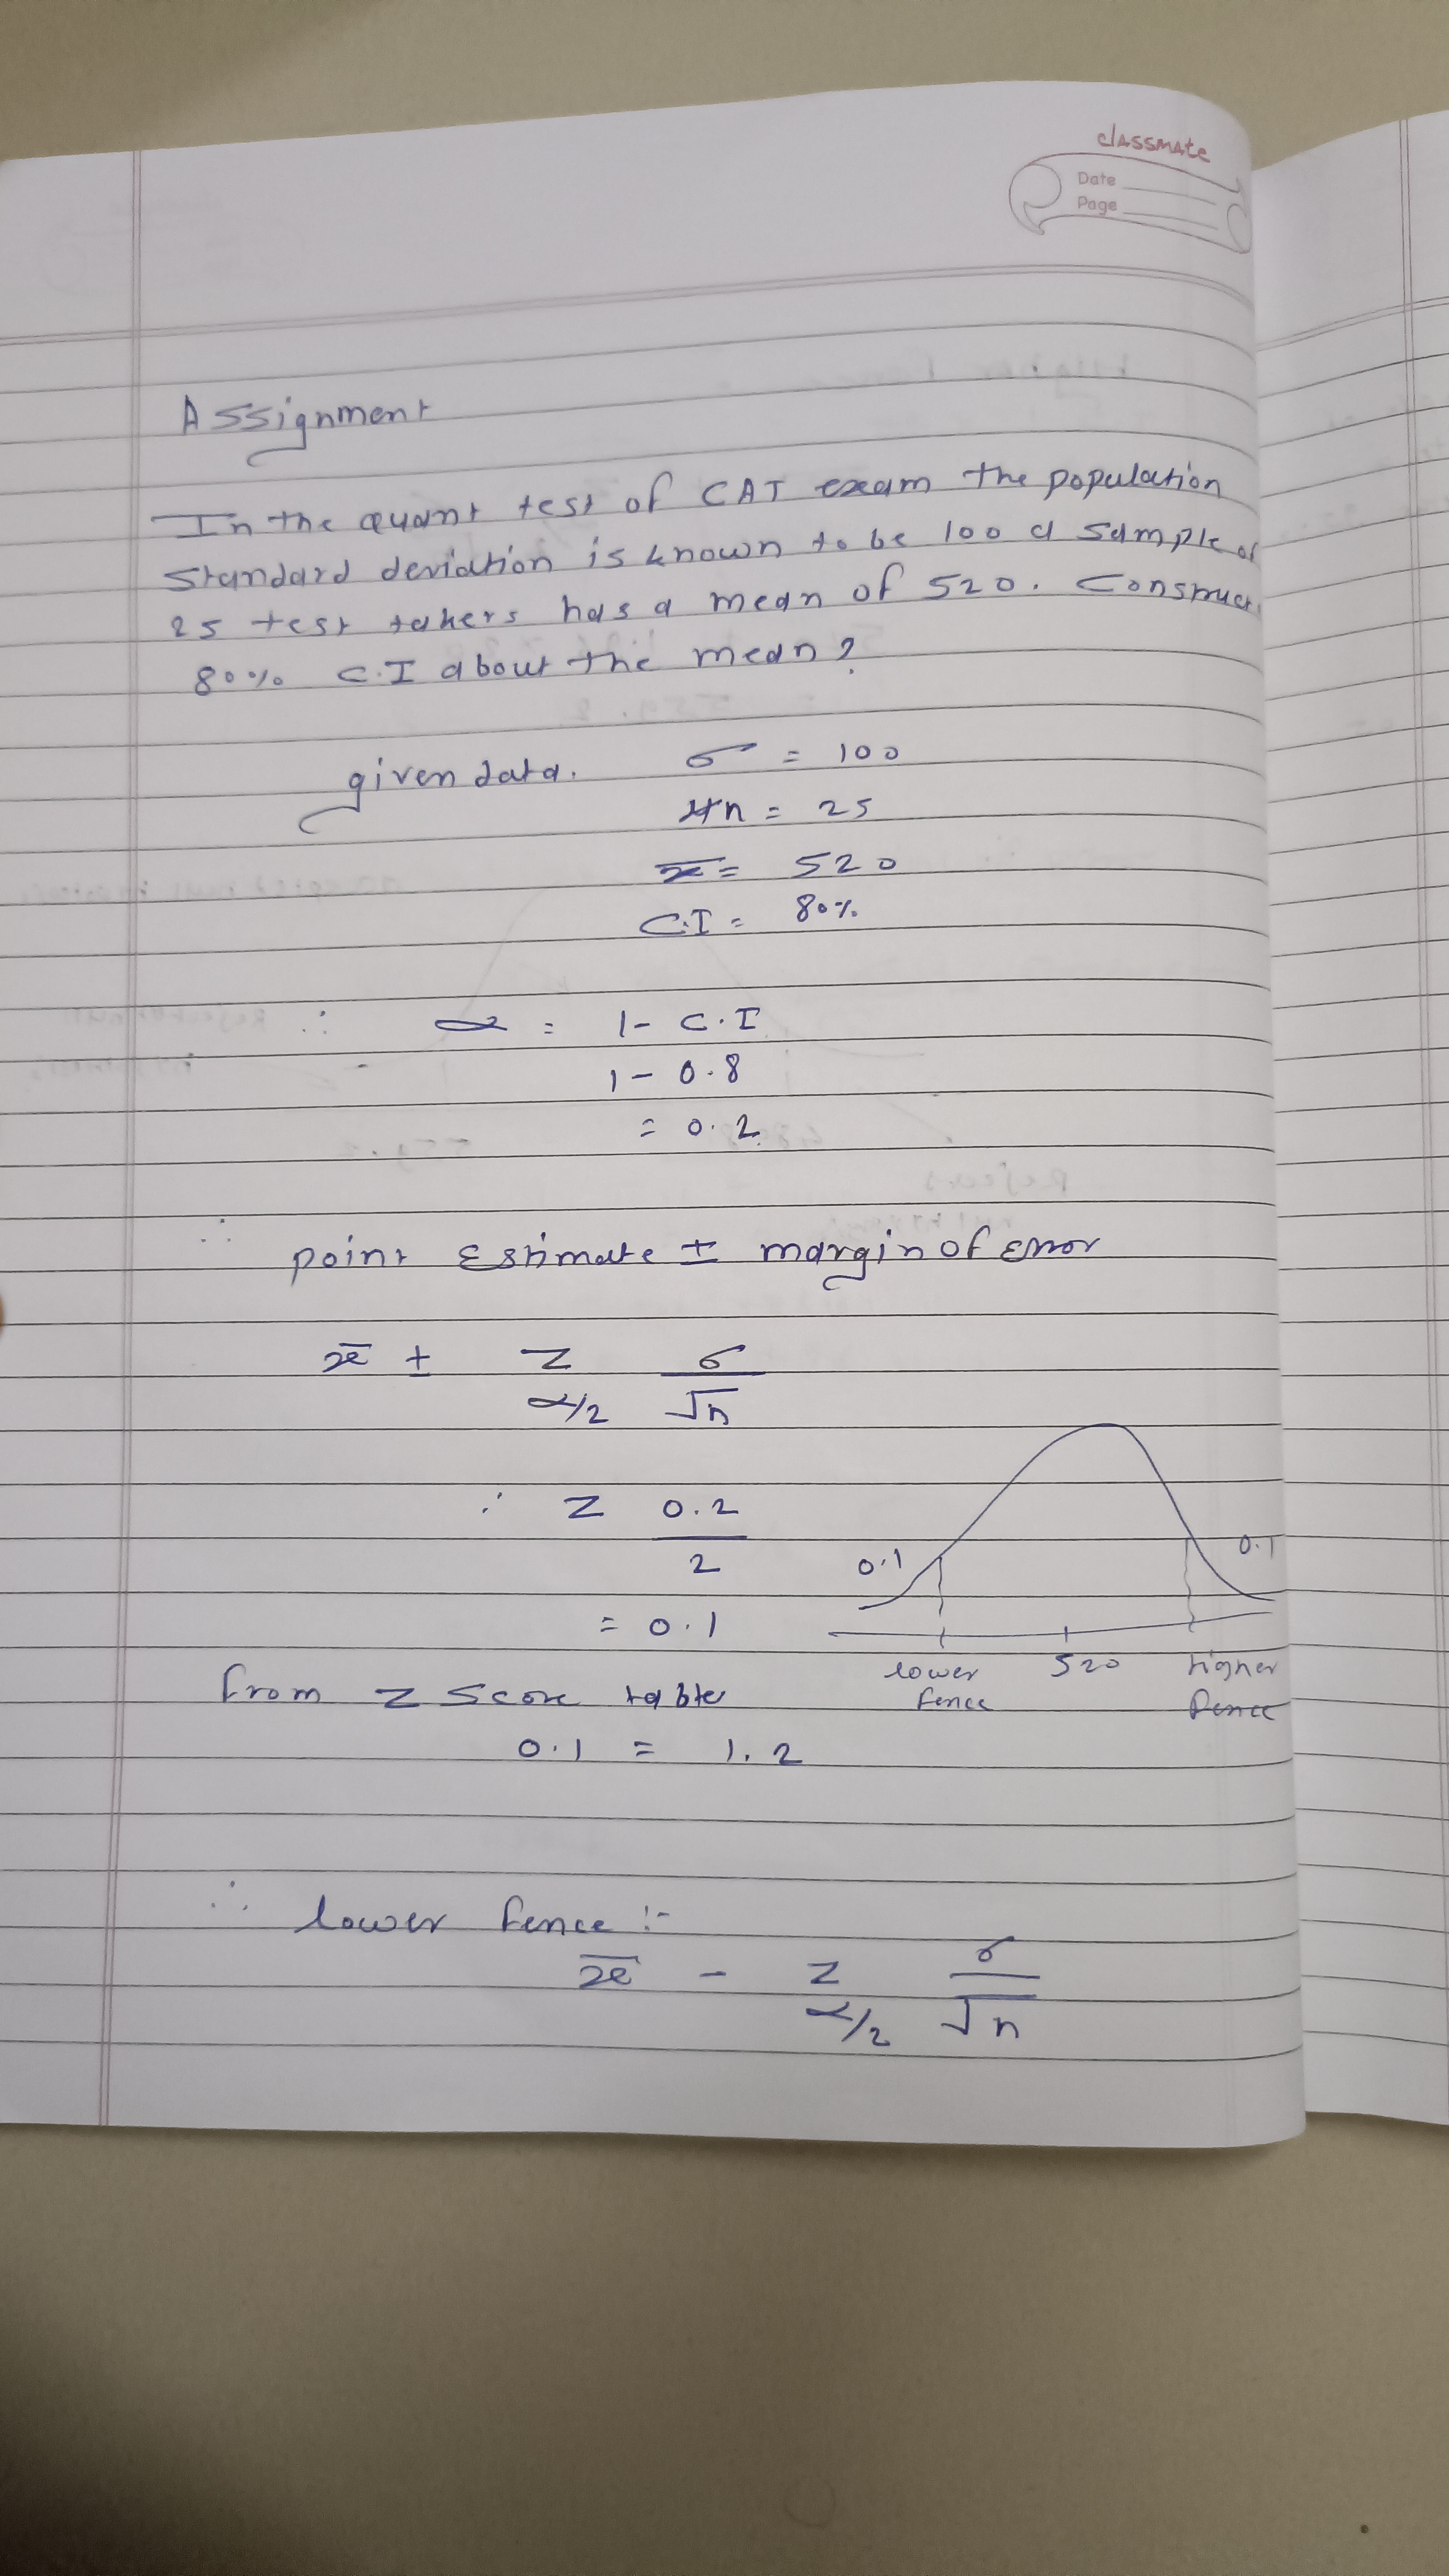 classmate
Date
Page
Assignment
In the quant test of CAT exam the population
standard deviation is known to be 100 a sample of
25 test takers has a mean of 520. Construct
80% C.I about the mean?
given data. σ = 100
n = 25
x̄ = 520
C.I = 80%
∴ α = 1 - C.I
1 - 0.8
= 0.2
∴ point Estimate ± margin of error
x̄ ± Z α/2 σ/√n
∴ Z 0.2/2
= 0.1
0.1 0.1
lower fence 520 higher fence
from Z score table
0.1 = 1.2
∴ lower fence :-
x̄ - Z α/2 σ/√n